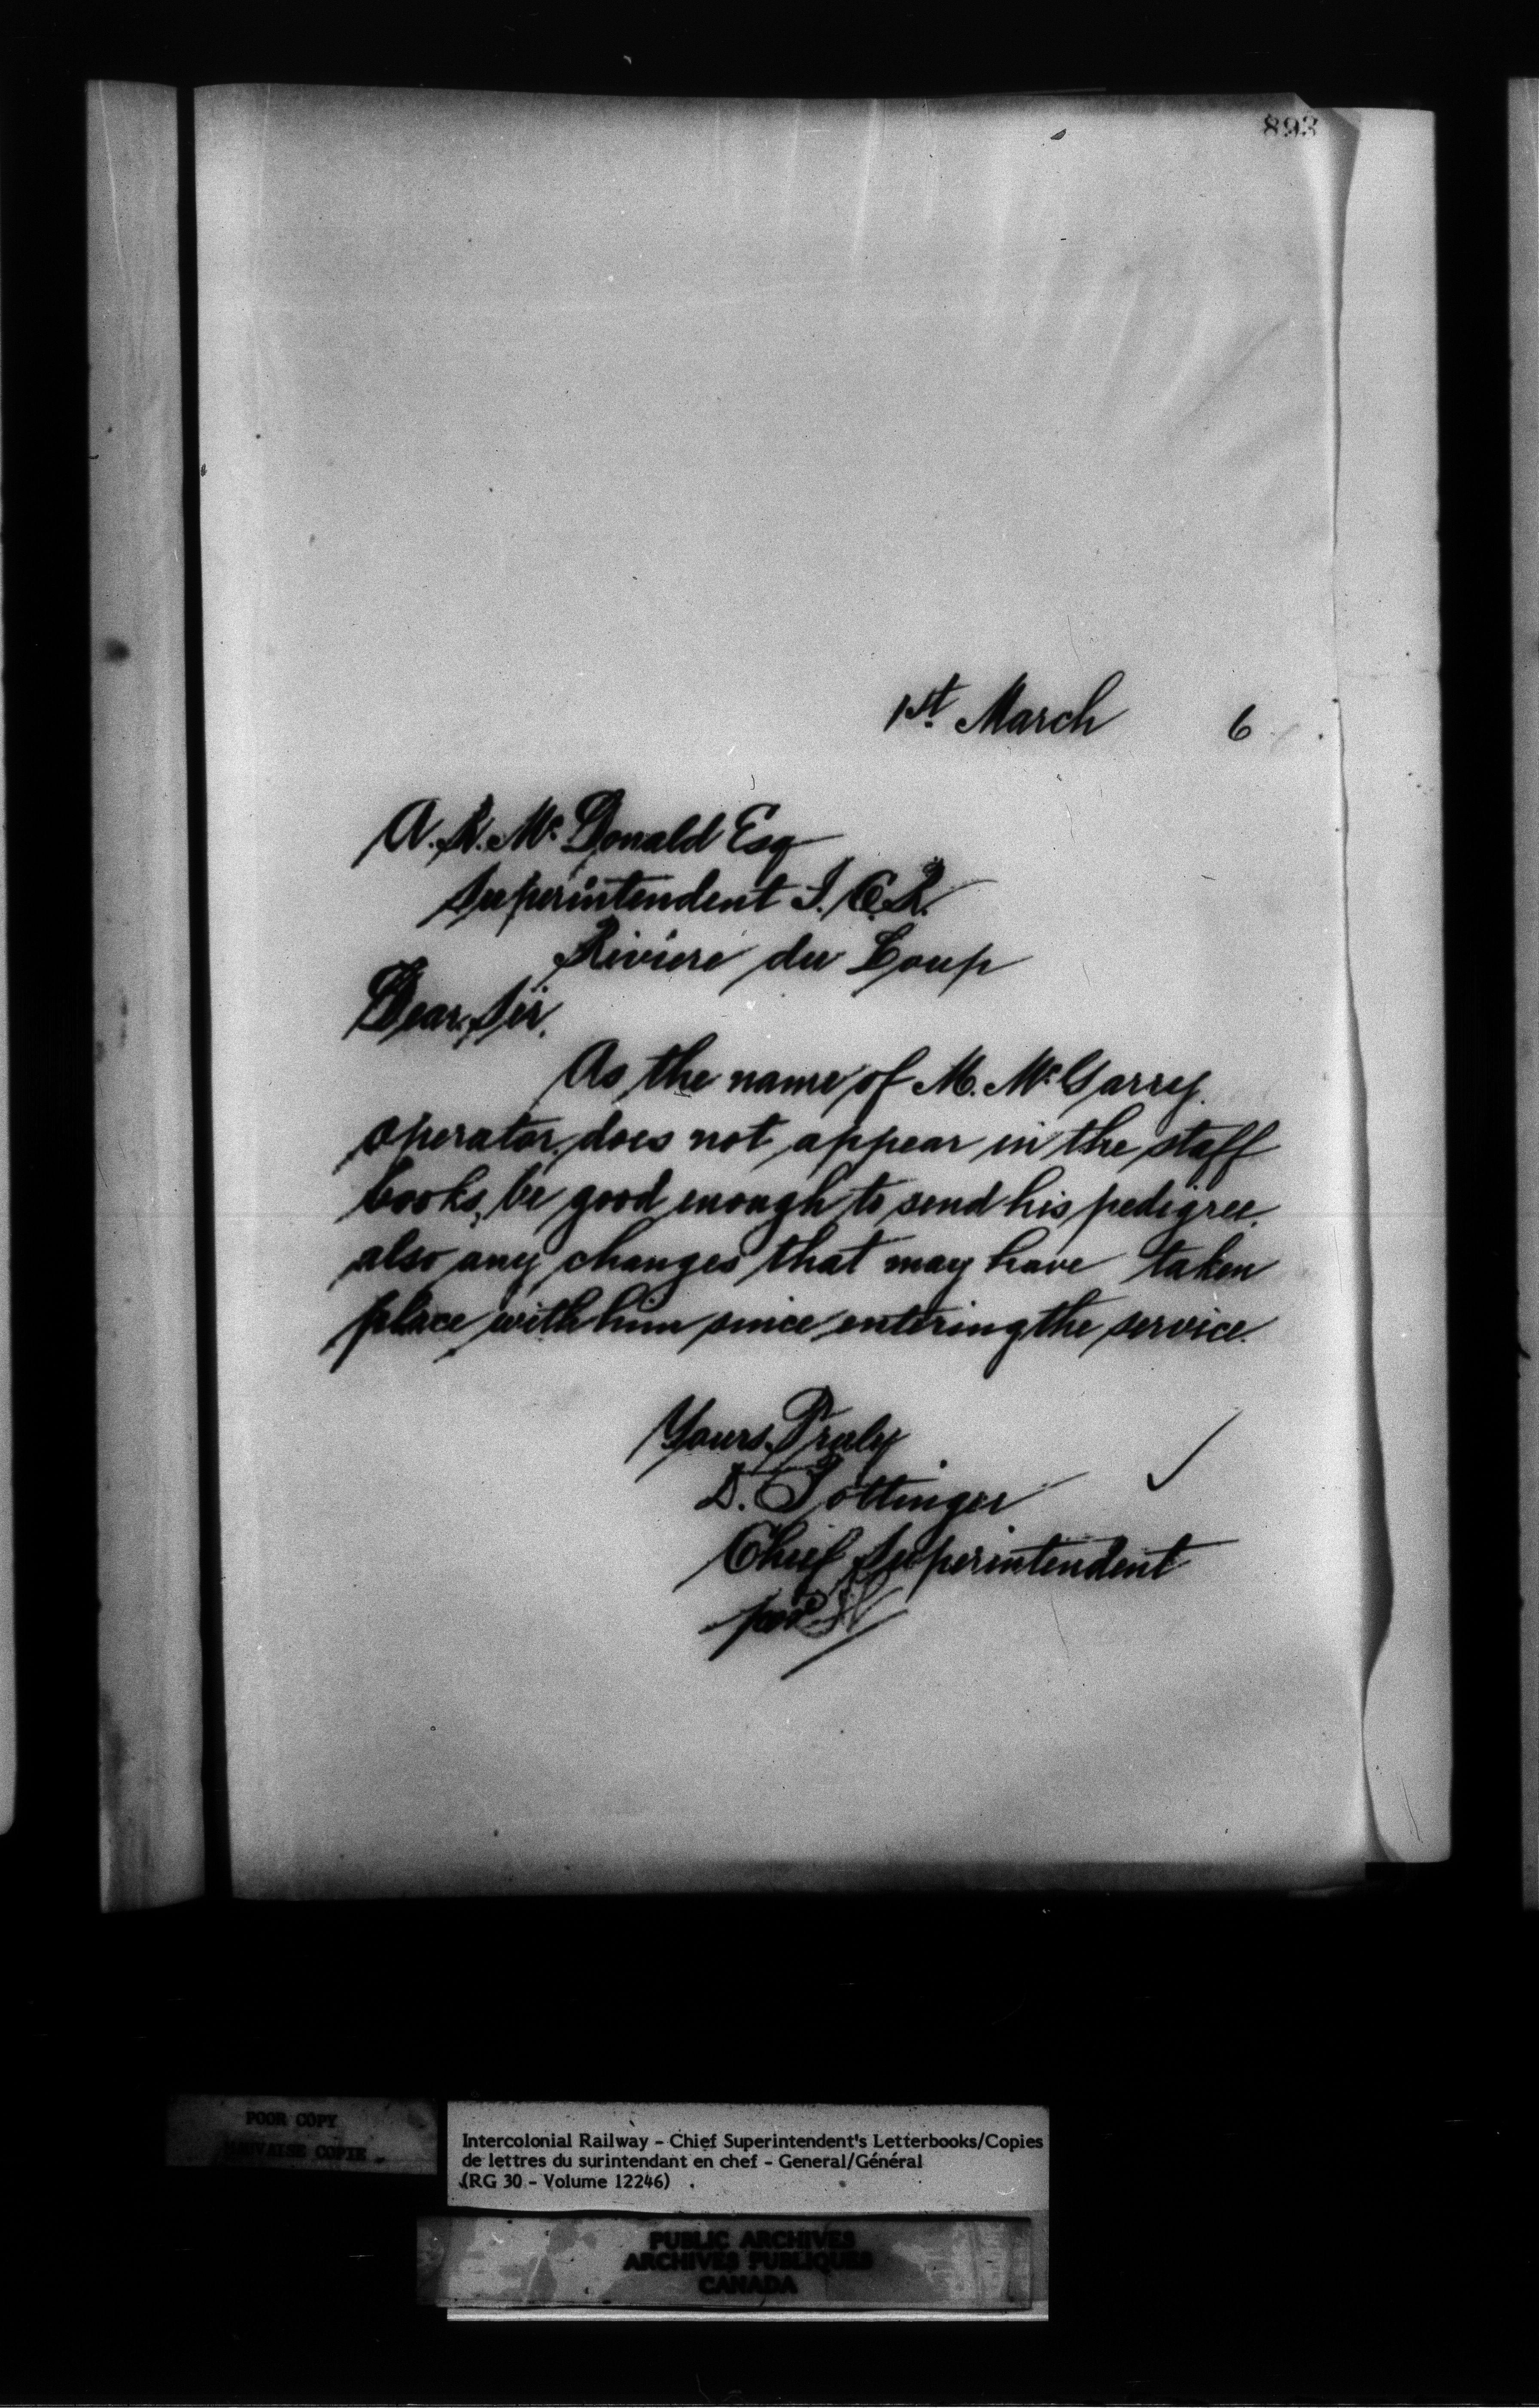 893
1st March 6
A. R. McDonald Esq
Superintendent I. C. R.
Riviere du Loup
Dear Sir,
As the name of M. McGarry
operator does not appear in the staff
books, be good enough to send his pedigree.
also any changes that may have taken
place with him since entering the service.
Yours Truly
D. Pottinger
Chief Superintendent
per
POOR COPY
MAUVAISE COPIE
Intercolonial Railway - Chief Superintendent's Letterbooks/Copies
de lettres du surintendant en chef - General/Général
(RG 30 - Volume 12246)
PUBLIC ARCHIVES
ARCHIVES PUBLIQUES
CANADA